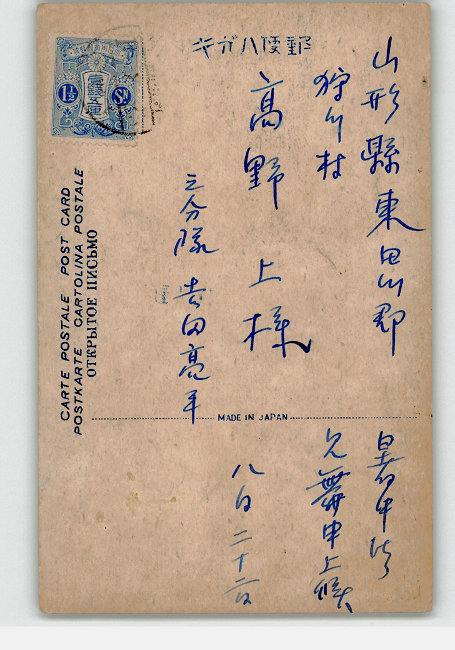 郵便ハガキ
山形縣東田川郡
狩川村
高野 上様
三分隊 吉田亮平
暑中御
見舞申上候
八月二十二日
1½
1½
CARTE POSTALE POST CARD
POSTKARTE CARTOLINA POSTALE
ОТКРЫТОЕ ПИСЬМО
MADE IN JAPAN